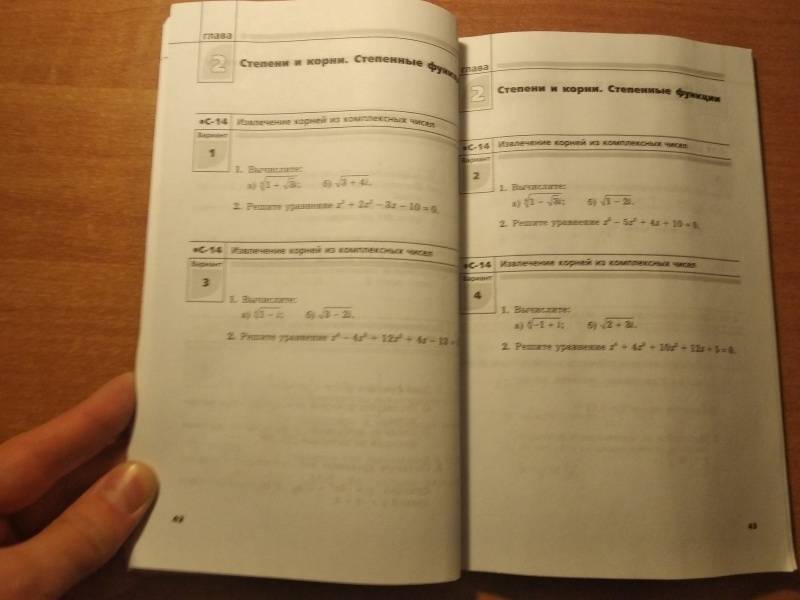 глава
2
Степени и корни. Степенные
•С-14 Извлечение корней из комплексных чисел
Вариант
1
1. Вычислите:
б) √3 + 4i.
2. Решите уравнение
•С-14 Извлечение корней из комплексных чисел
Вариант
3
1. Вычислите:
б) √3 − 2i.
2. Решите уравнение
глава
2
Степени и корни. Степенные функции
•С-14 Извлечение корней из комплексных чисел
Вариант
2
1. Вычислите:
б) √1 − 2i.
2. Решите уравнение
•С-14 Извлечение корней из комплексных чисел
Вариант
4
1. Вычислите:
б) √2 + 3i.
2. Решите уравнение